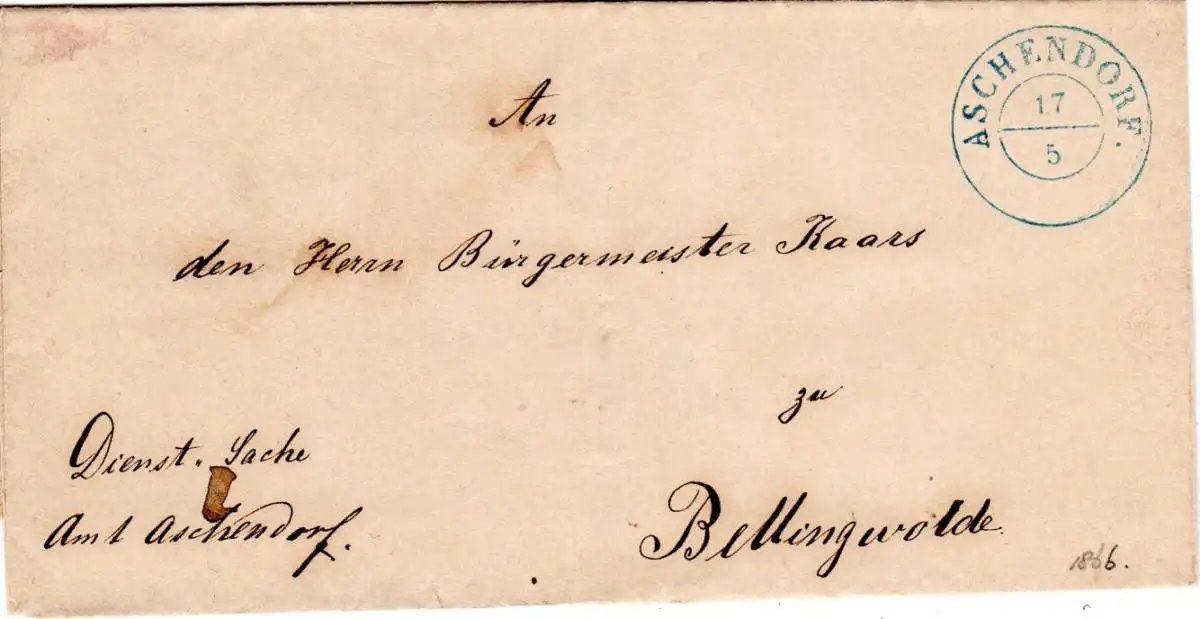 ASCHENDORF.
17
5
An
den Herrn Bürgermeister Kaars
zu
Dienst. Sache
Bellingwolde
Amt Aschendorf.
1866.